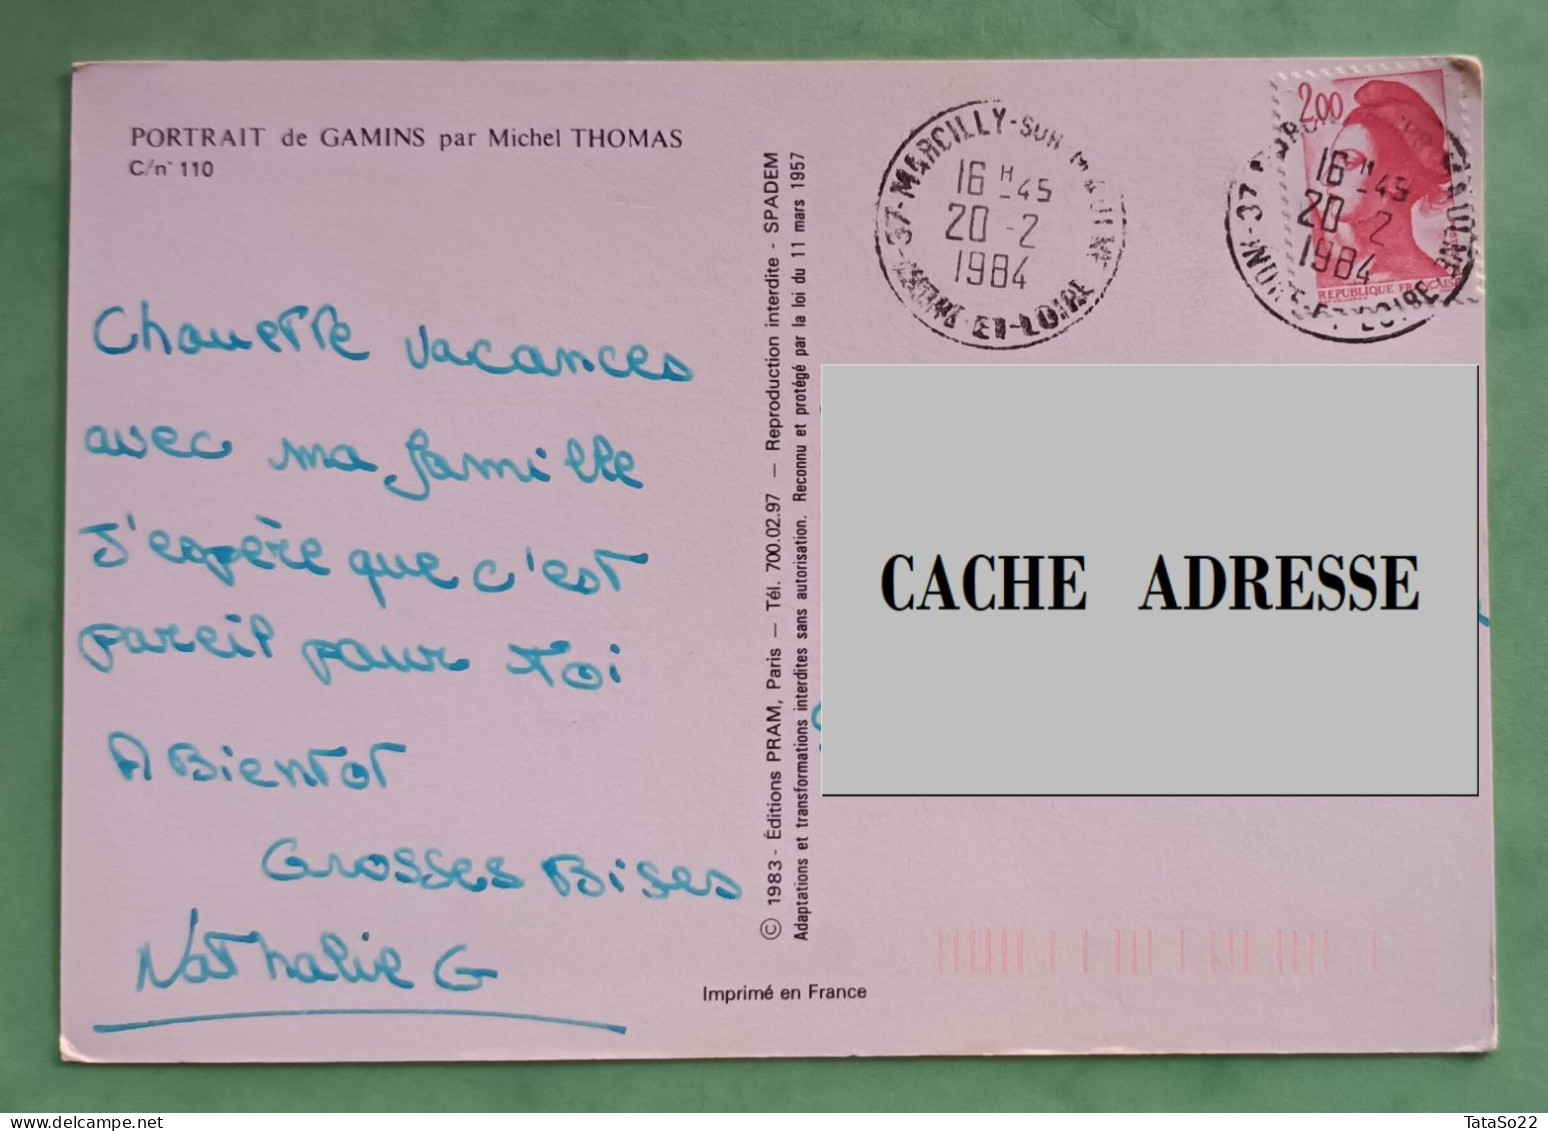 PORTRAIT de GAMINS par Michel THOMAS
C/n° 110
Chouette vacances
avec ma famille
J'espère que c'est
pareil pour toi
A Bientot
Grosses Bises
Nathalie G
© 1983 - Éditions PRAM, Paris — Tél. 700.02.97 — Reproduction interdite - SPADEM
Adaptations et transformations interdites sans autorisation. Reconnu et protégé par la loi du 11 mars 1957
Imprimé en France
37-MARCILLY-SUR-MAULNE
16 H -45
20 -2
1984
INDRE-ET-LOIRE
2,00
RÉPUBLIQUE FRANÇAISE
37
16 H -45
20 -2
1984
INDRE-ET-LOIRE
CACHE ADRESSE
TataSo22